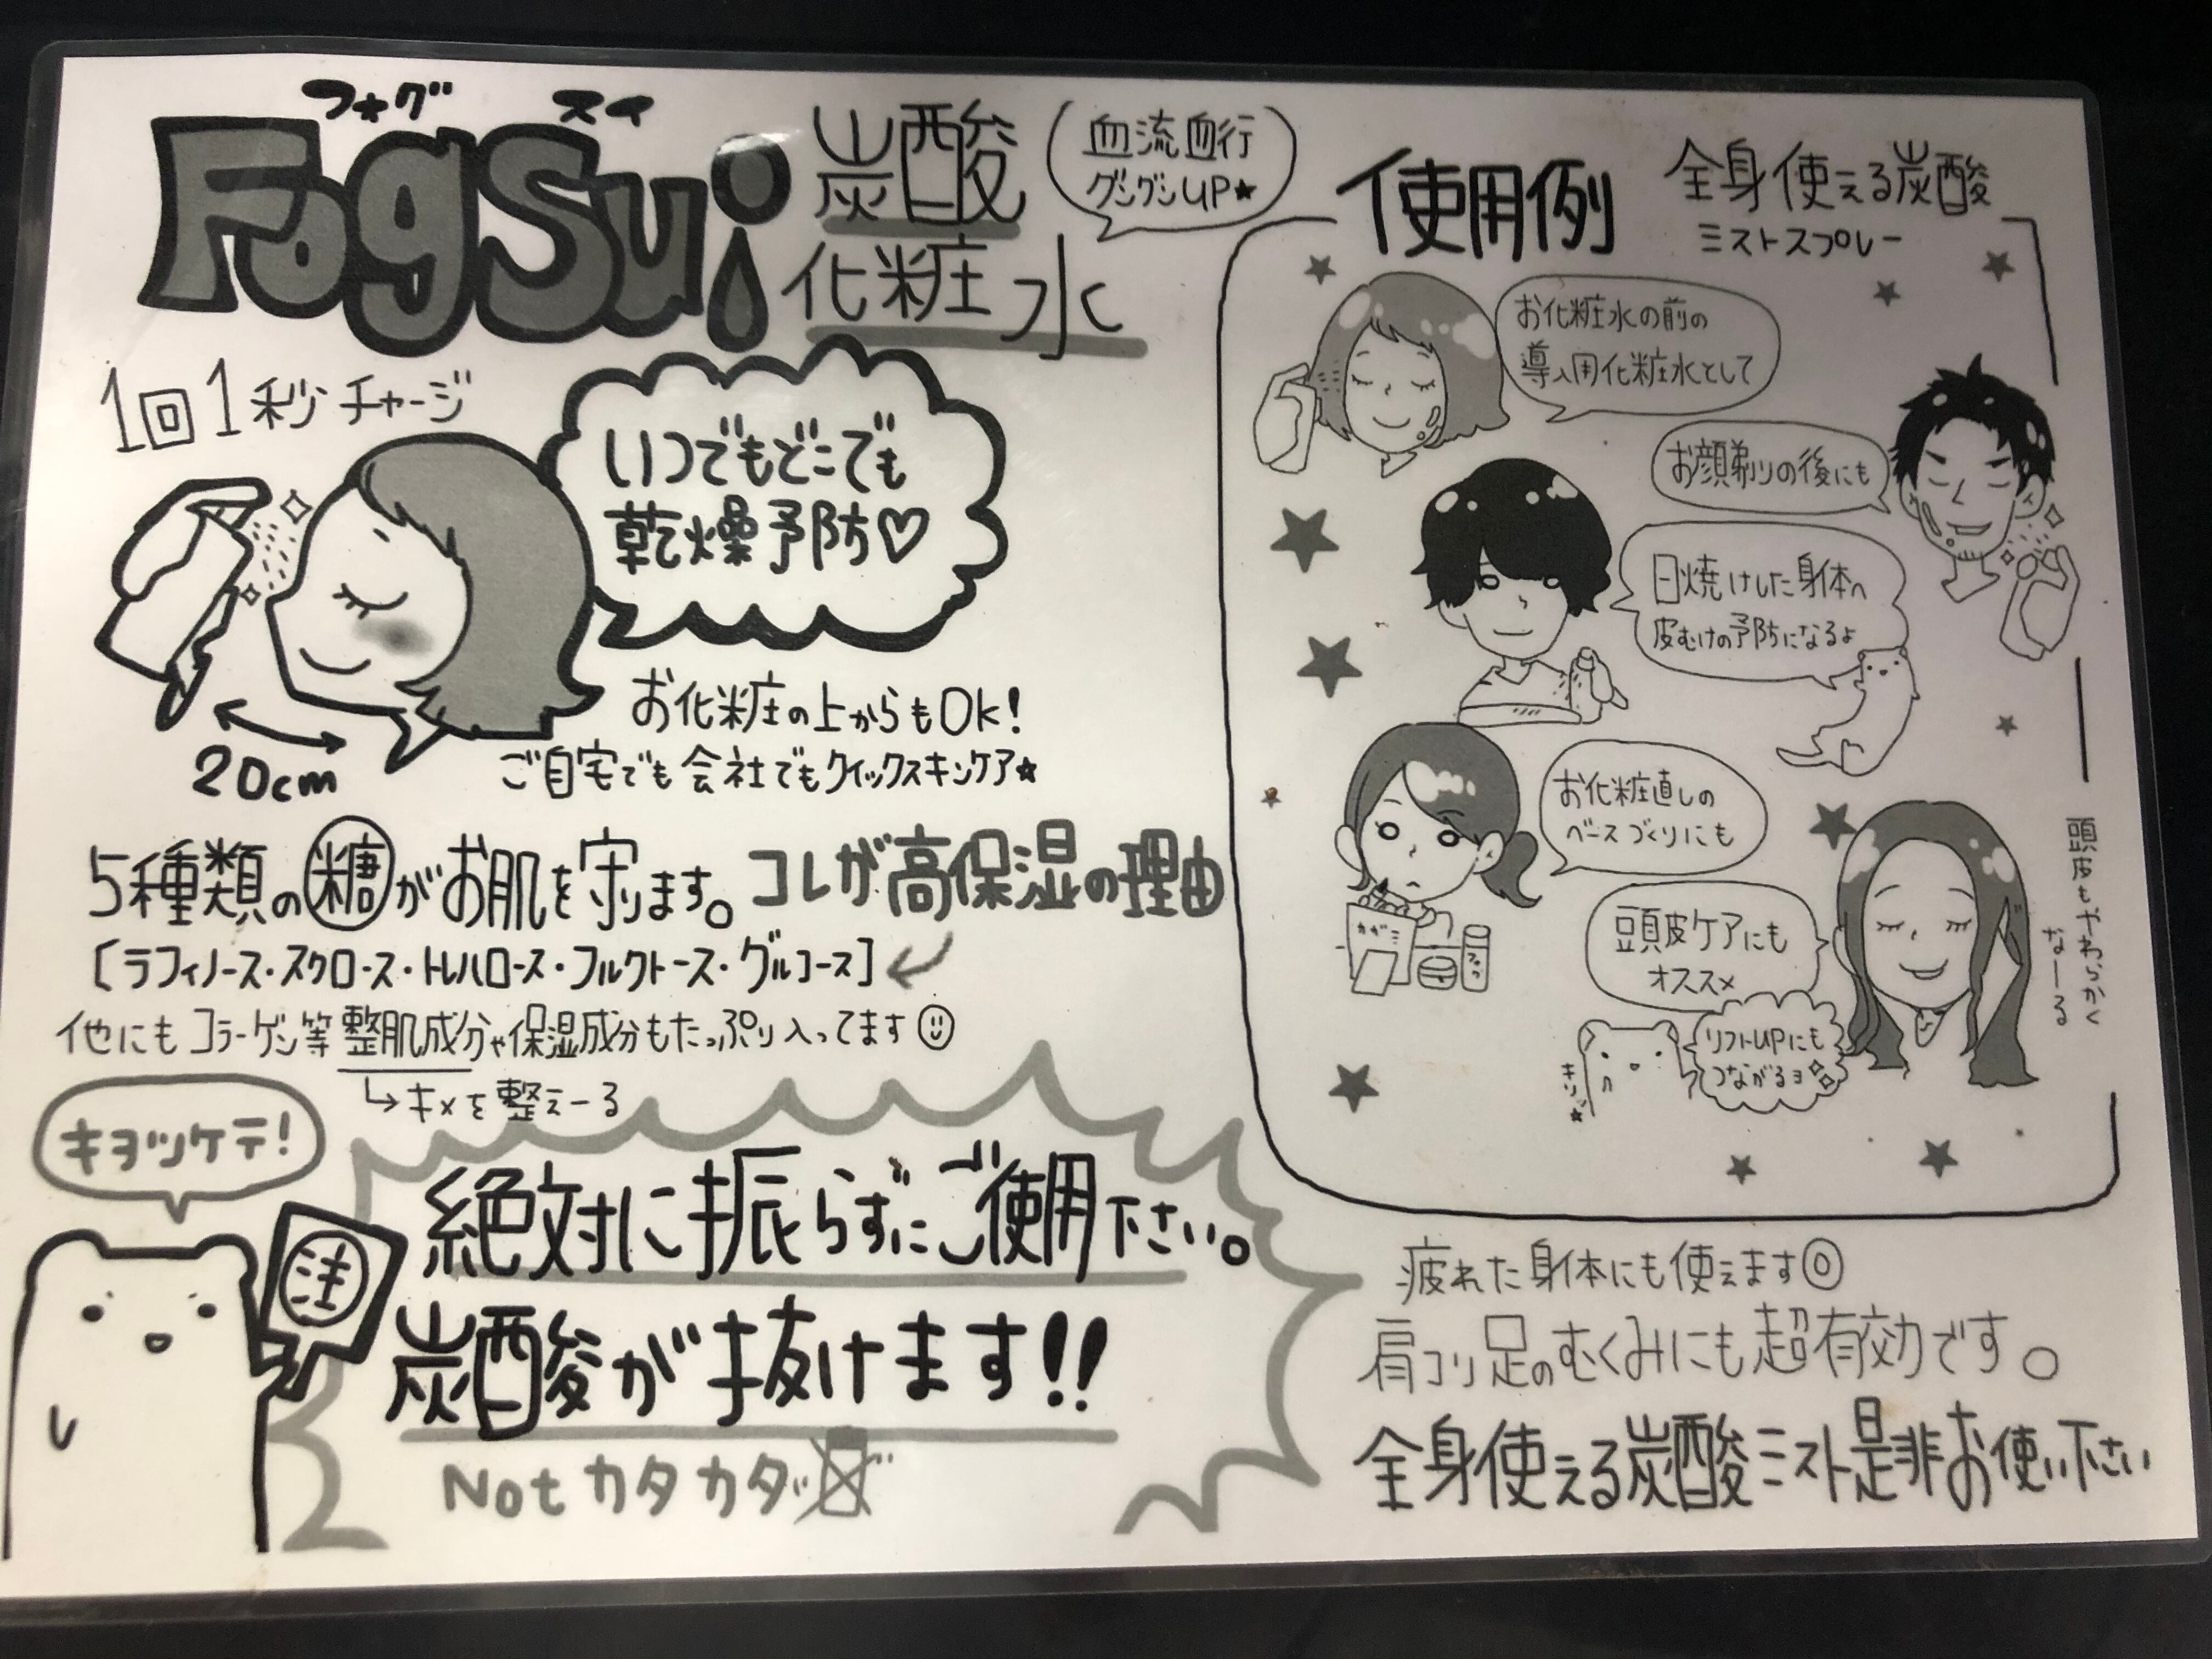 フォグ スイ
FogSui
炭酸
化粧水
血流血行
グングンUP★
1回1秒チャージ
いつでもどこでも
乾燥予防♡
20cm
お化粧の上からもOK!
ご自宅でも会社でもクイックスキンケア★
5種類の糖がお肌を守ります。コレが高保湿の理由
[ラフィノース・スクロース・トレハロース・フルクトース・グルコース]
他にもコラーゲン等整肌成分や保湿成分もたっぷり入ってます
↳キメを整えーる
キヨツケテ!
注
絶対に振らずにご使用下さい。
炭酸が抜けます!!
Notカタカタ
使用例
全身使える炭酸
ミストスプレー
お化粧水の前の
導入用化粧水として
お顔剃りの後にも
日焼けした身体へ
皮むけの予防になるよ
お化粧直しの
ベースづくりにも
カガミ
頭皮ケアにも
オススメ
頭皮もやわらかく
なーる
リフトUPにも
つながるヨ
キリッ★
疲れた身体にも使えます◎
肩コリ足のむくみにも超有効です。
全身使える炭酸ミスト是非お使い下さい